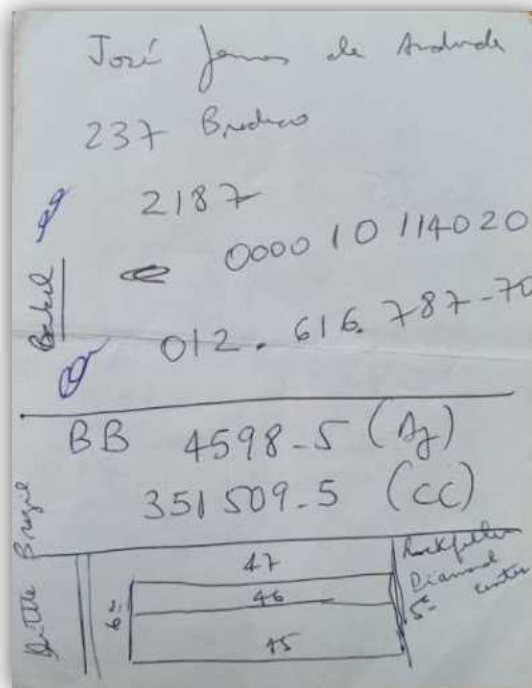 José James de Andrade
237 Bradesco
2187
0000 10 114020
012. 616. 787-70
BB 4598-5 (Ag)
351509-5 (CC)
Little Brazil
47
46
45
6ª
5ª
Rockfeller
Diamond
center